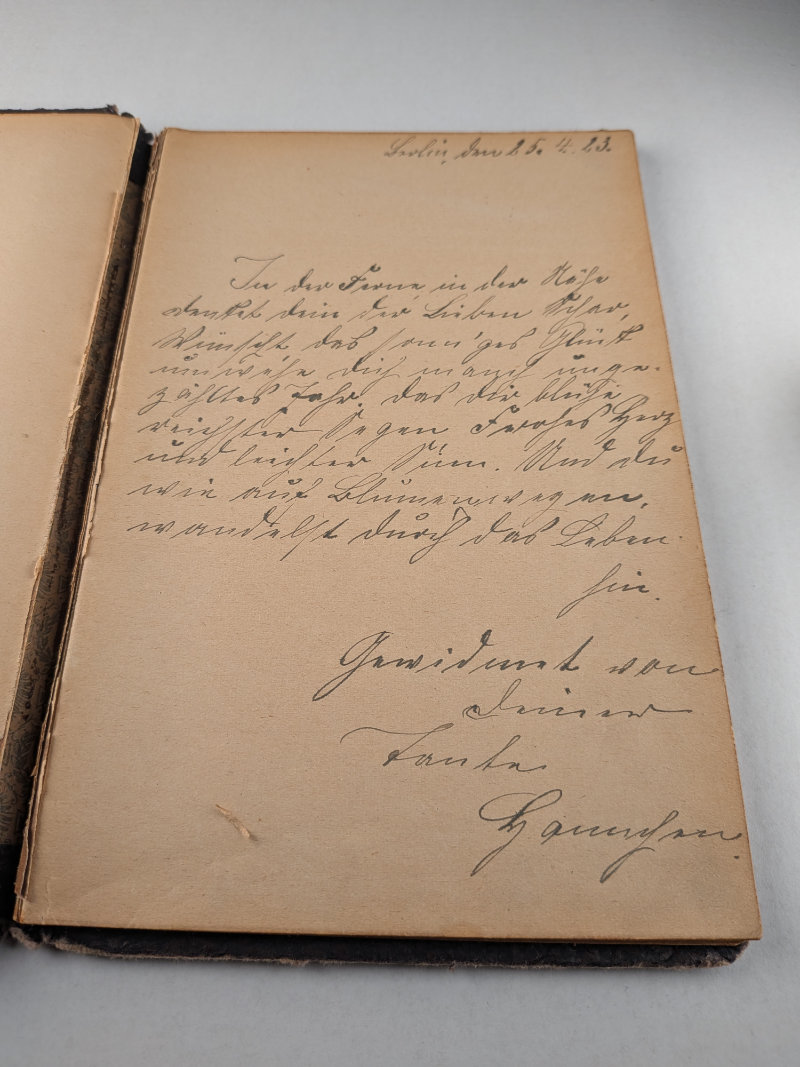 Berlin, den 25. 4. 23.
In der Ferne, in der Nähe
denket dein der Lieben Schar,
Wünscht das sonn'ges Glück
umwehe dich manch unge-
zähltes Jahr. das dir blühe
reichster Segen Frohes Herz
und leichter Sinn. Und du
wie auf Blumenwegen,
wandelst durch das Leben
hin.
Gewidmet von
Deiner
Tante
Hannchen.